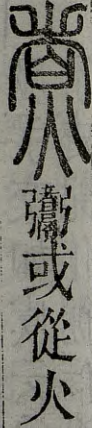 煮𩱰或從火